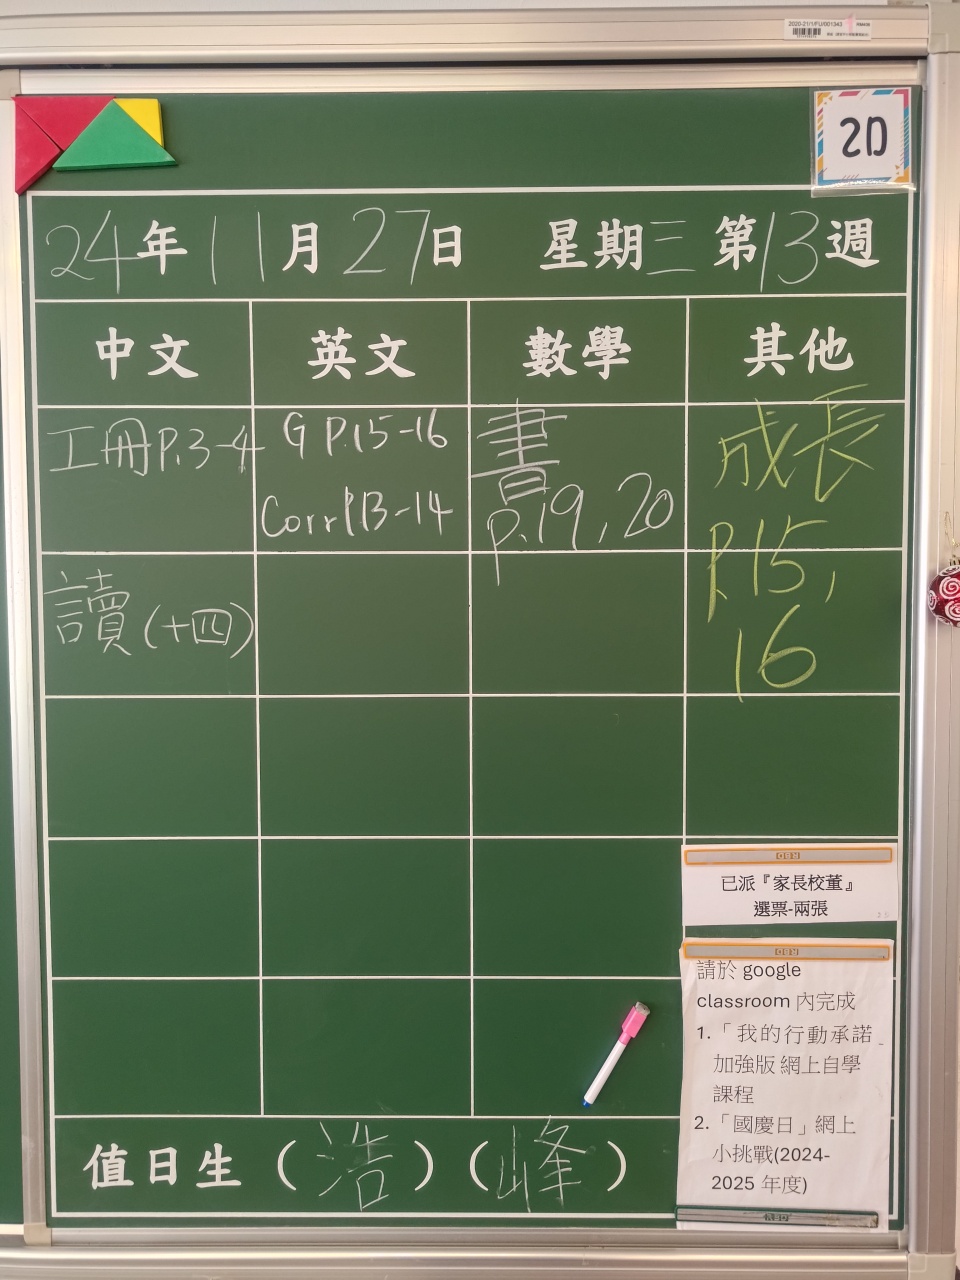 2020-21/1/FU/001343
2D
24年11月27日 星期三 第13週
中文 英文 數學 其他
工冊P.3-4
讀(十四)
G P.15-16
Corr P.13-14
書
p.19, 20
成長
P.15,
16
已派『家長校董』
選票-兩張
請於 google
classroom 內完成
1.「我的行動承諾
加強版 網上自學
課程
2.「國慶日」網上
小挑戰(2024-
2025 年度)
值日生 (浩) (峰)